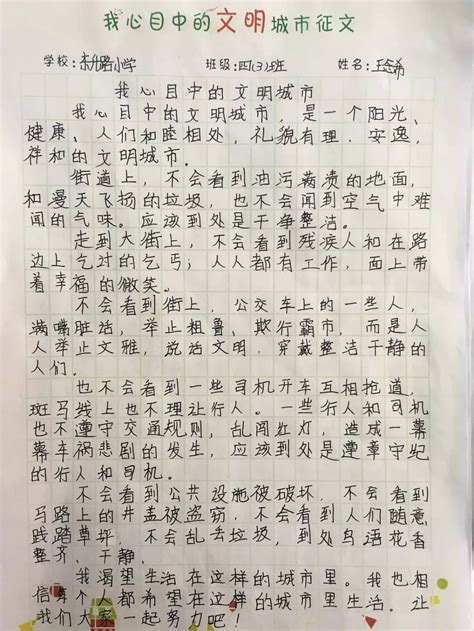 我心目中的文明城市征文
学校:东升路小学 班级:四(3)班 姓名:王念希
我心目中的文明城市
我心目中的文明城市,是一个阳光、
健康、人们和睦相处,礼貌有理、安逸,
祥和的文明城市。
街道上,不会看到油污满渍的地面,
和漫天飞扬的垃圾,也不会闻到空气中难
闻的气味。应该到处是干净整洁。
走到大街上,不会看到残疾人和在路
边上乞讨的乞丐;人人都有工作,面上带
着幸福的微笑。
不会看到街上,公交车上的一些人,
满嘴脏话,举止粗鲁、欺行霸市,而是人
人举止文雅,说话文明,穿戴整洁干静的
人们。
也不会看到一些司机开车互相抢道,
斑马线上也不理让行人。一些行人和司机
也不遵守交通规则,乱闯红灯,造成一幕
幕车祸悲剧的发生,应该到处是遵章守纪
的行人和司机。
不会看到公共设施被破坏,不会看到
马路上的井盖被盗窃,不会看到人们随意
践踏草坪,不会乱丢垃圾,到处鸟语花香
整齐、干静。
我渴望生活在这样的城市里。我也相
信每个人都希望在这样的城市里生活。让
我们大家一起努力吧!